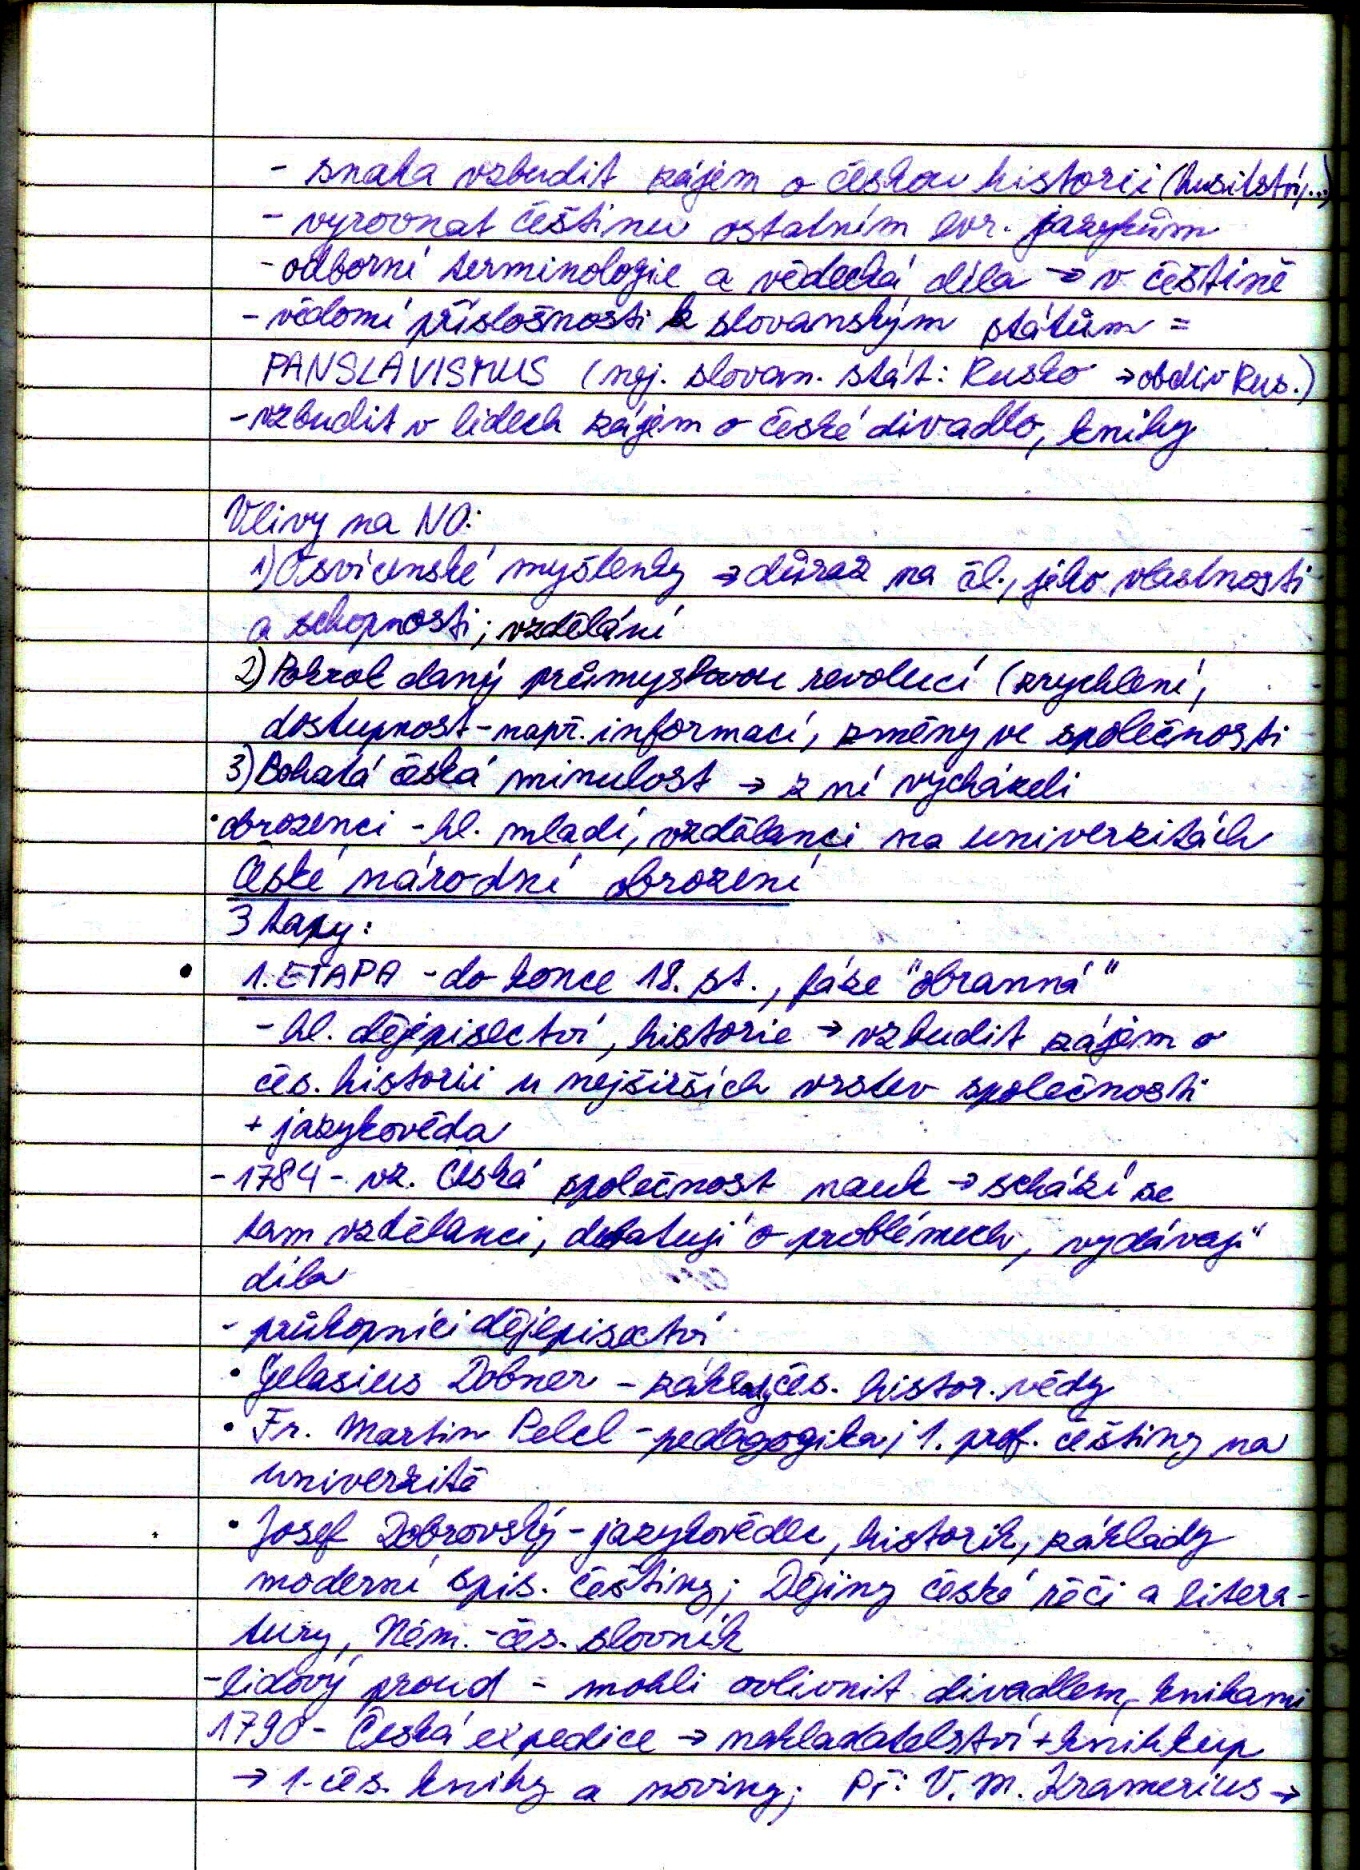 - snaha vzbudit zájem o českou historii (husitství...)
- vyrovnat češtinu ostatním evr. jazykům
- odborní terminologie a vědecká díla → v češtině
- vědomí příslošnosti k slovanským státům =
PANSLAVISMUS (nej. slovan. stát: Rusko → obdiv Rus.)
- vzbudit v lidech zájem o české divadlo, knihy
Vlivy na NO:
1) Osvícenské myšlenky → důraz na čl., jeho vlastnosti
a schopnosti; vzdělání
2) Pokrok daný průmyslovou revolucí (zrychlení,
dostupnost - např. informací, změny ve společnosti
3) Bohatá česká minulost → z ní vycházeli
• obrozenci - hl. mladí, vzdělanci na univerzitách
České národní obrození
3 tapy:
• 1. ETAPA - do konce 18. st., fáze "obranná"
- hl. dějepisectví, historie → vzbudit zájem o
čes. historii u nejširších vrstev společnosti
+ jazykověda
- 1784 - vz. Česká společnost nauk → schází se
tam vzdělanci, debatují o problémech, vydávají
díla
- průkopníci dějepisectví
• Gelasius Dobner - základy čes. histor. vědy
• Fr. Martin Pelcl - pedagogika; 1. prof. češtiny na
univerzitě
• Josef Dobrovský - jazykovědec, historik, základy
moderní spis. češtiny; Dějiny české řeči a litera-
tury, Něm.-čes. slovník
- lidový proud = mohli ovlivnit divadlem, knihami
1790 - Česká expedice → nakladatelství + knihkup
→ 1. čes. knihy a noviny; Př: V. M. Kramerius →